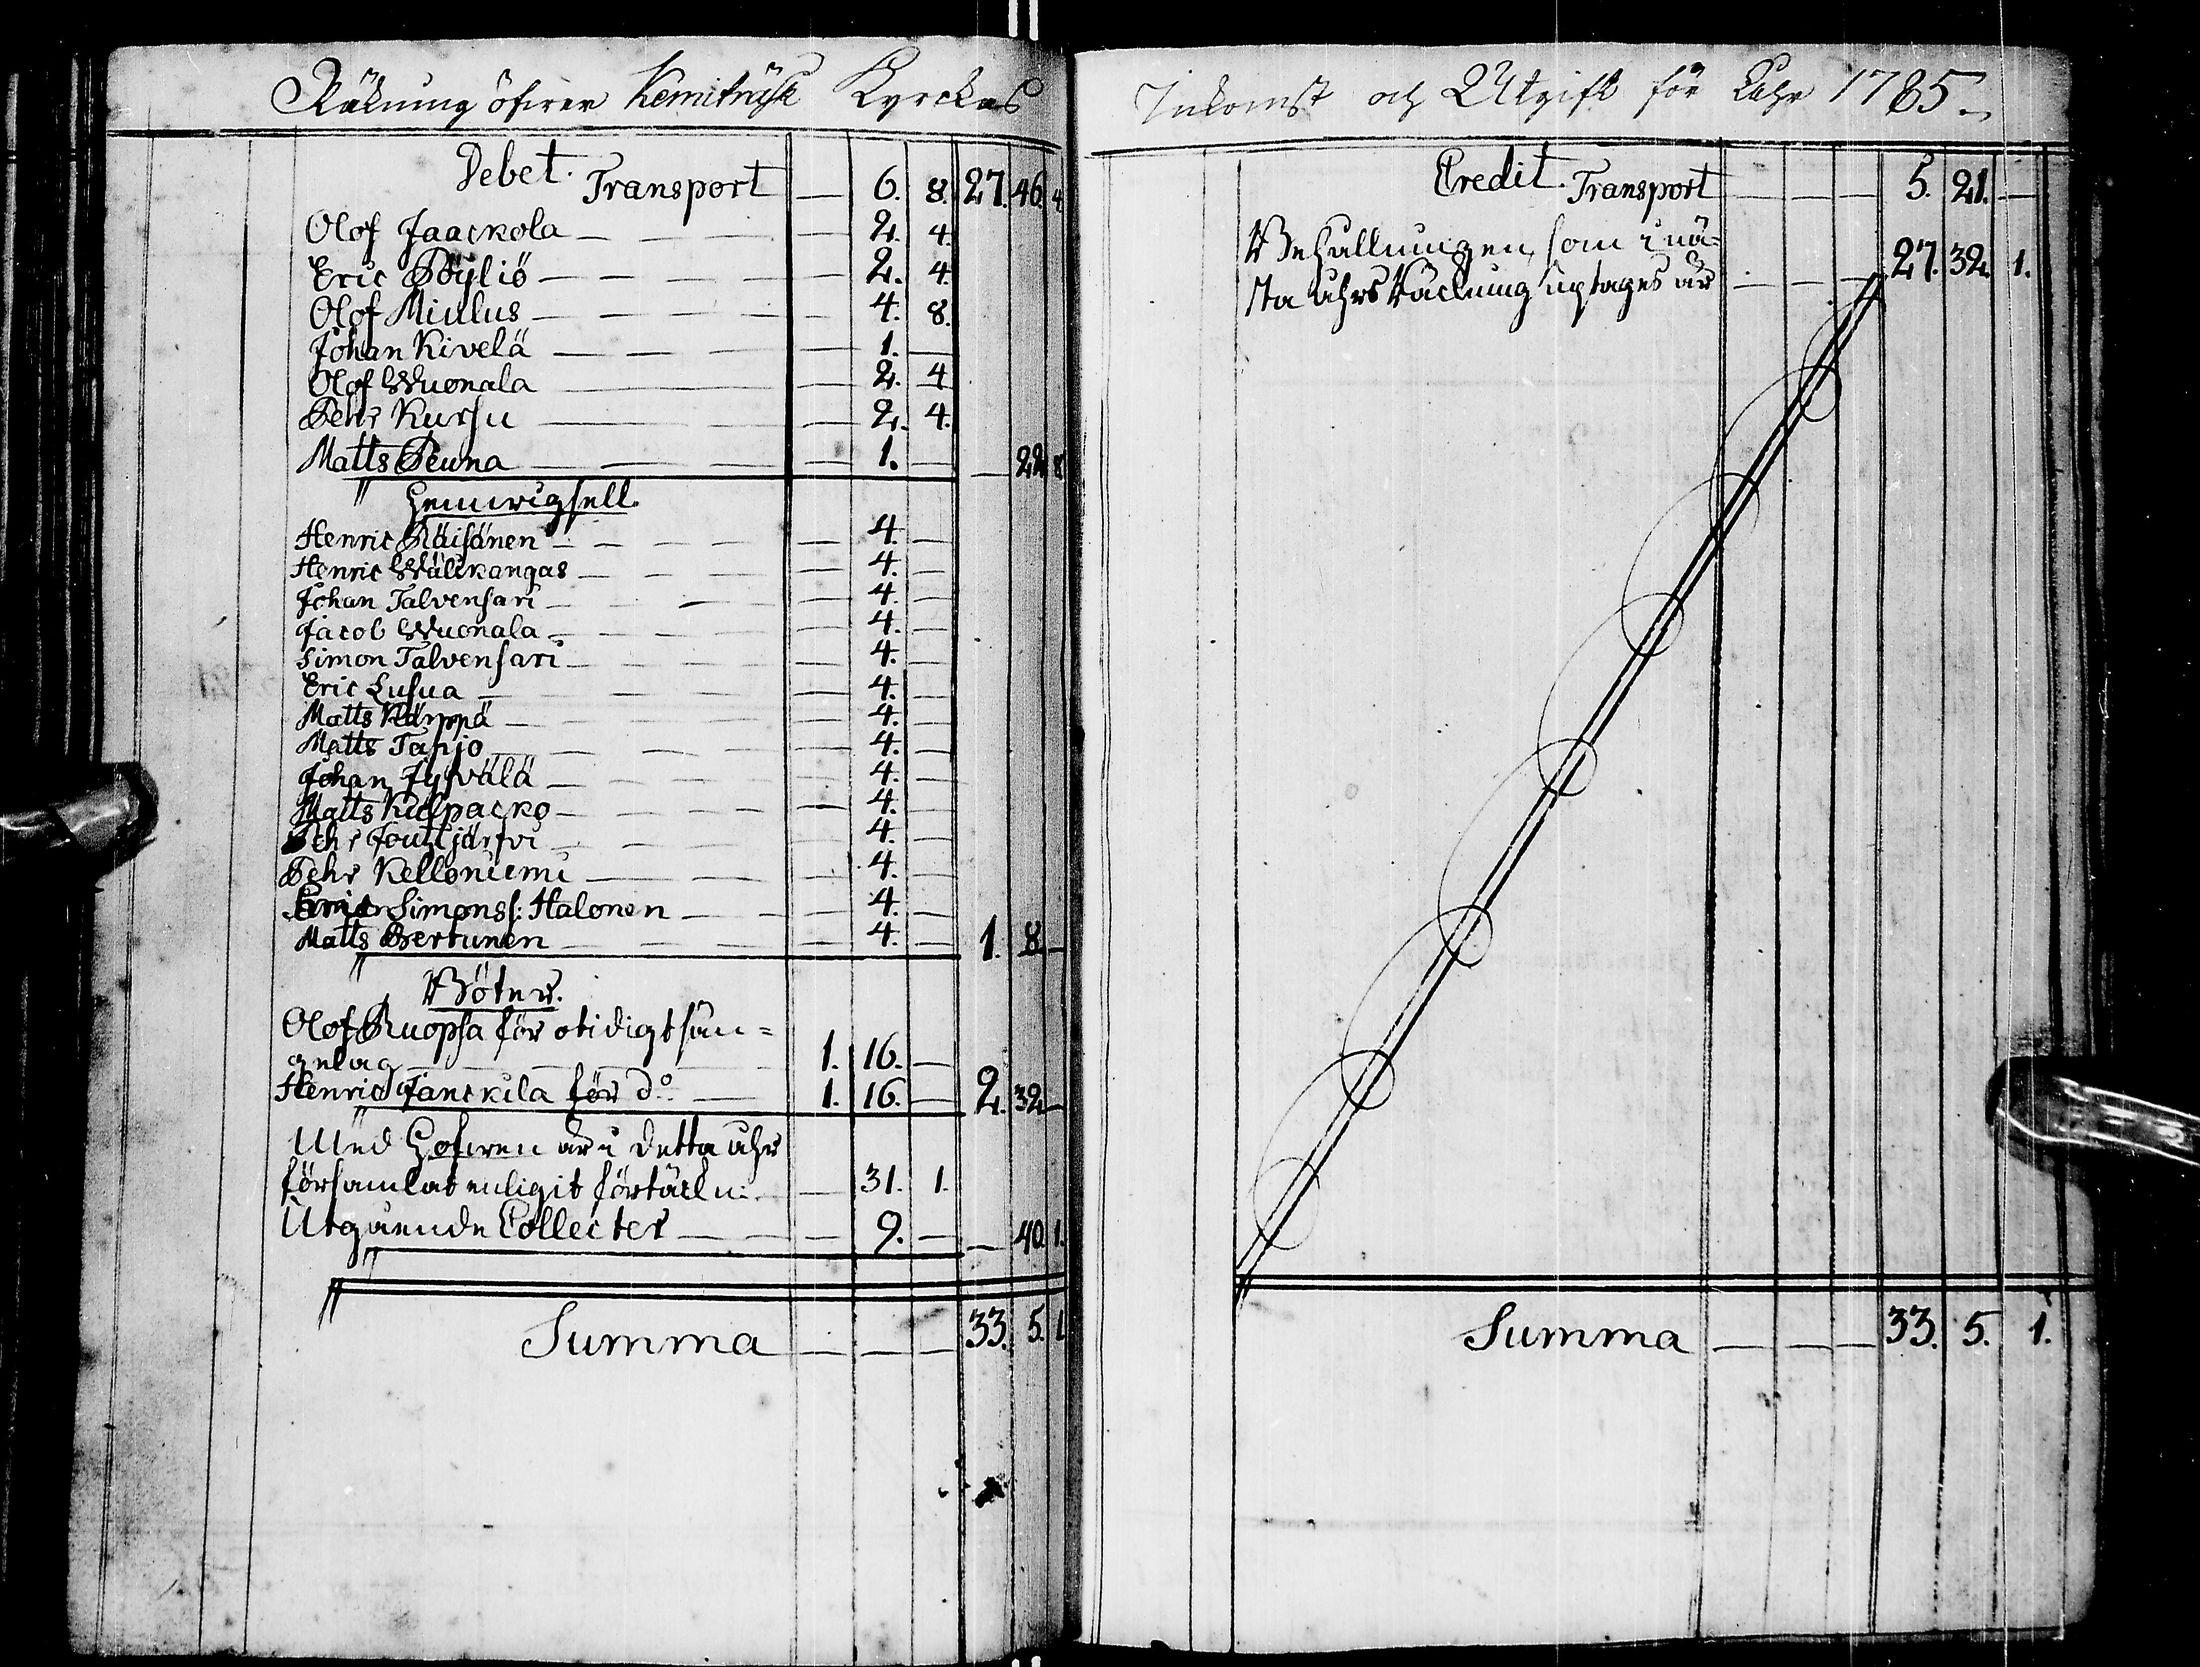 Räkning öfwer Kemiträsk Kyrckas
Debet. Transport — 6. 8. 27. 46. 4.
Olof Jaackola — 2. 4.
Eric Pöyliö — 2. 4.
Olof Miulus — 4. 8.
Johan Kivelä — 1. —
Olof Wuonala — 2. 4
Pehr Kursu — 2. 4.
Matts Peuna — 1. — — 22 8
Hemwigsell.
Henric Räisänen — 4. —
Henric Wälickangas — 4. —
Johan Talvensari — 4. —
Jacob Wuonala — 4. —
Simon Talvensari — 4. —
Eric Lusua — 4. —
Matts Kärppä — 4. —
Matts Tapio — 4. —
Johan Jyrvälä — 4. —
Matts Kielpacko — 4. —
Pehr Joutzijärfvi — 4. —
Pehr Kelloniemi — 4. —
Simonss: Halonen — 4. —
Matts Pertunen — 4. — 1. 8. —
Böter.
Olof Ruopsa för otidigt sän=
gelag — 1. 16. —
Henric Janckila för do: — 1. 16. — 2. 32 —
Med Hofwen är i detta åhr
församlat enligit förtäckn: — 31. 1.
Utgående Collecter — 9. — — 40. 1.
Summa — — — 33. 5. 1
Inkomst och Utgift för Åhr 1785.
Credit. Transport — — — 5. 21. —
Behållningen, som i nä-
sta åhrs Räckning uptages är — — — 27. 32. 1.
Summa — — — 33. 5. 1.